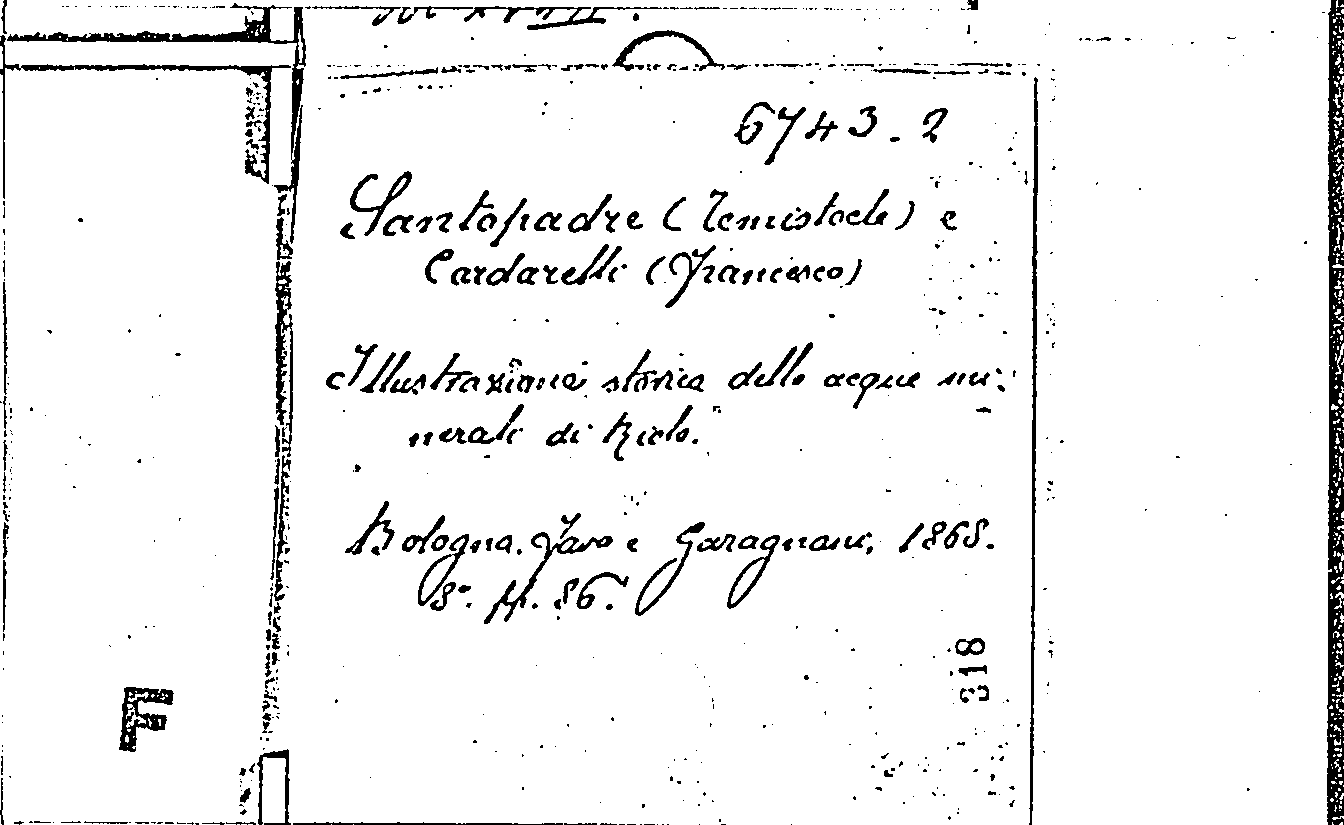 6743.2
Santopadre (Temistocle) e
Cardarelli (Francesco)
Illustrazione storica delle acque mi-
nerali di Riolo.
Bologna. Fava e Garagnani, 1868.
8°. pp. 86.
318
F